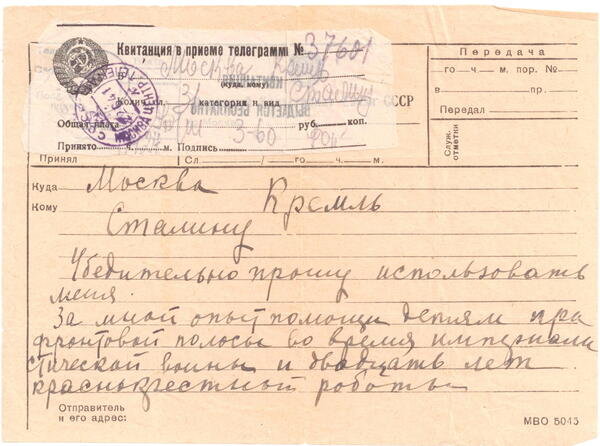 Квитанция в приеме телеграмм №
37601
Москва Кремль
(куда, кому)
Сталину
КВИТАНЦИЯ
ВЫДАЕТСЯ БЕСПЛАТНО
СССР
категория и вид
Общая плата 3-60 руб. коп.
Принято ч. м. Подпись
Принял Сл. го ч. м.
Передача
го ч. м. пор. №
в пр.
Передал
Служ. отметки
Куда Москва Кремль
Кому Сталину
Убедительно прошу использовать
меня.
За мной опыт помощи детям при
фронтовой полосы во время империали
стической войны и двадцать лет
краснокрестной работы
Отправитель
и его адрес:
МВО 5045